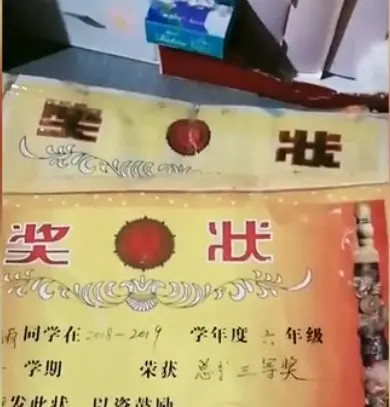 奖状
奖状
同学在 2018-2019 学年度 六 年级
学期 荣获 总分三等奖
发此状 以资鼓励